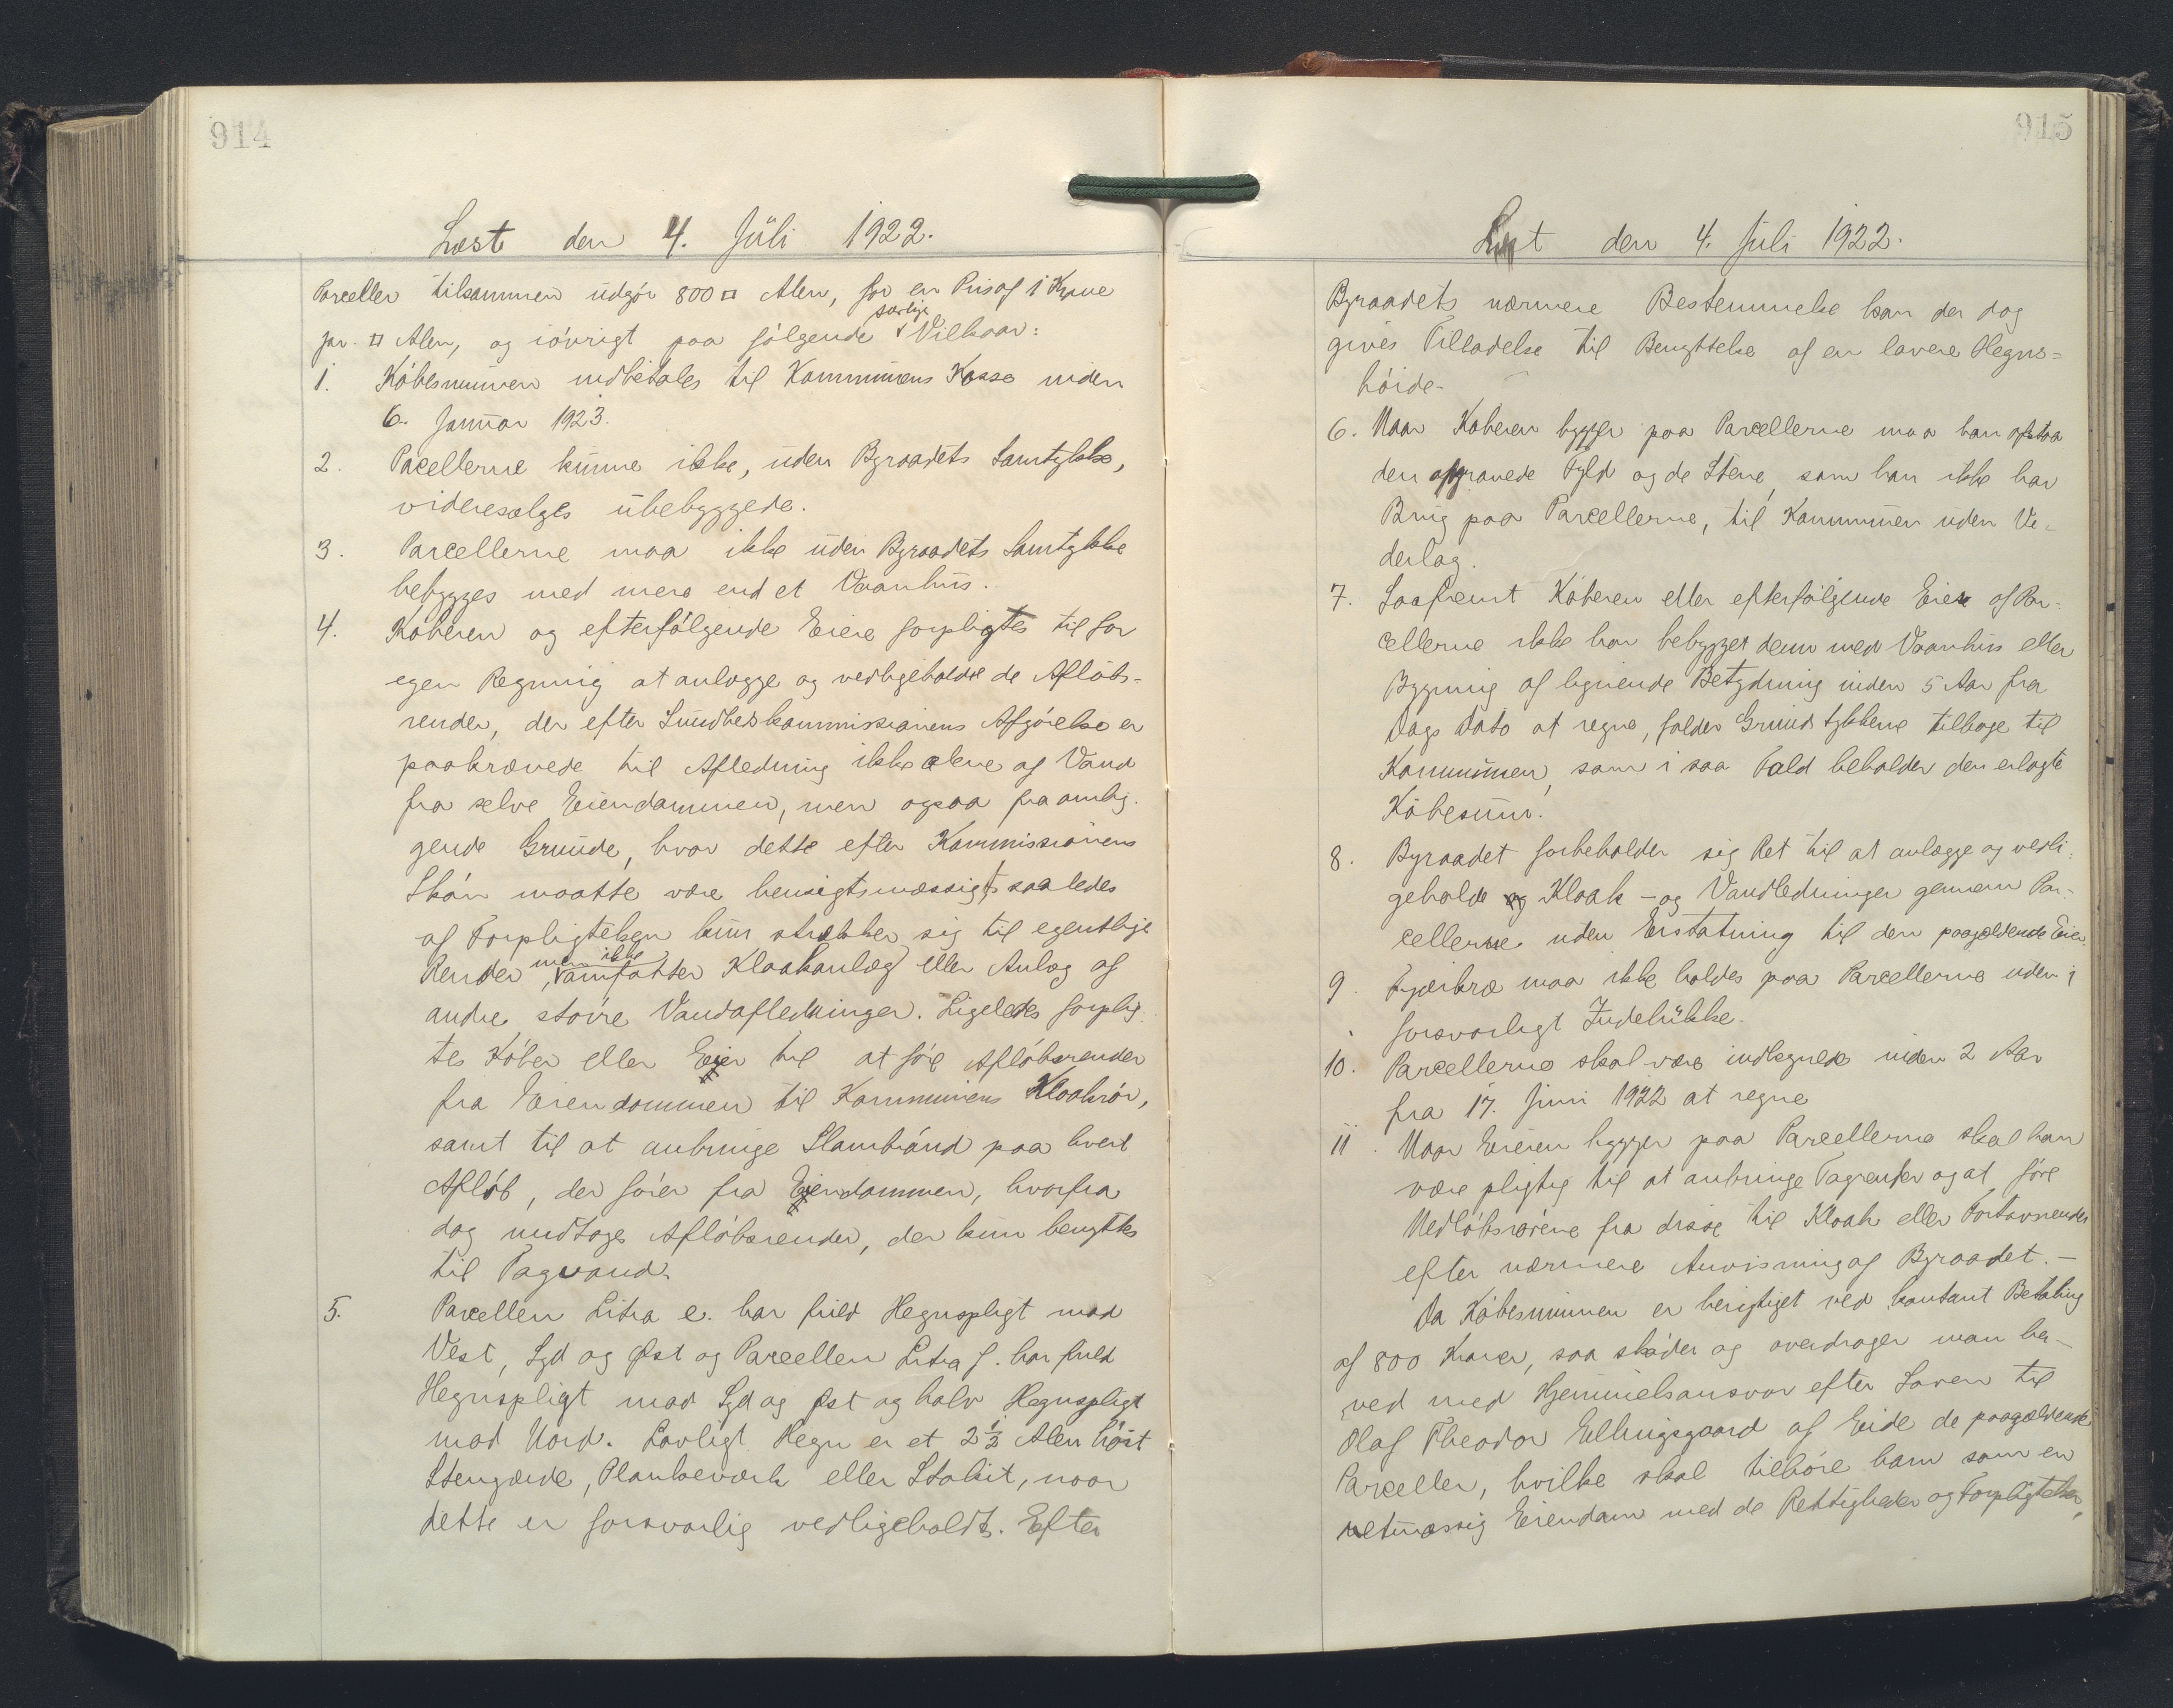 914
Læst den 4. Juli 1922.
Parceller tilsammen udgör 800 □ Alen, for en Pris af 1 Krone
særlige
pr. □ Alen, og iövrigt paa fölgende Vilkaar:
1. Köbesummen indbetales til Kommunens Kasse inden
6. Januar 1923.
2. Pacellerne kunne ikke, uden Byraadets Samtykke,
videresælges ubebyggede.
3. Parcellerne maa ikke uden Byraadets Samtykke
bebygges med mere end et Vaanhus.
4. Köberen og efterfölgende Eiere forpligtes til for
egen Regning at anlægge og vedligeholde de Aflöbs-
render, der efter Sundhedskommissionens Afgörelse er
paakrævede til Afledning ikke alene af Vand
fra selve Eiendommen, men ogsaa fra omlig-
gende Grunde, hvor dette efter Kommissionens
Skön maatte være hensigtsmæssigt, saaledes
af Forpligtelsen kun strækker sig til egentlige
men ikke
Render, omfatter Kloakanlæg eller Anlæg af
andre större Vandafledninger. Ligeledes forplig-
tes Köber eller Eier til at före Aflöbsrender
fra Eiendommen til Kommunens Kloakrör,
samt til at anbringe Slambrönd paa hvert
Aflöb, der förer fra Eiendommen, hvorfra
dog undtages Aflöbsrender, der kun benyttes
til Tagvand.
5. Parcellen Litra e. har fuld Hegnspligt mod
Vest, Syd og Øst og Parcellen Litra f. har fuld
Hegnspligt mod Syd og Øst og halv Hegnspligt
mod Nord. Lovligt Hegn er et 2½ Alen höit
Stengærde, Plankeværk eller Stakit, naar
dette er forsvarlig vedligeholdt. Efter
915
Læst den 4. Juli 1922.
Byraadets nærmere Bestemmelse kan der dog
gives Tilladelse til Benyttelse af en lavere Hegns=
höide.
6. Naar Köberen bygger paa Parcellerne maa han afstaa
den afgravede Fyld og de Stene, som han ikke har
Brug paa Parcellerne, til Kommunen uden Ve-
derlag.
7. Saafremt Köberen eller efterfölgende Eiere af Par-
cellerne ikke har bebygget dem med Vaanhus eller
Bygning af lignende Betydning inden 5 Aar fra
Dags Dato at regne, falder Grundstykkerne tilbage til
Kommunen, som i saa Fald beholder den erlagte
Köbesum.
8. Byraadet forbeholder sig Ret til at anlægge og vedli-
geholde Kloak- og Vandledninger gennem Par-
cellerne uden Erstatning til den paagældende Eier.
9. Fjerkræ maa ikke holdes paa Parcellerne uden i
forsvarligt Indelukke.
10. Parcellerne skal være indhegnede inden 2 Aar
fra 17. Juni 1922 at regne
11. Naar Eieren bygger paa Parcellerne skal han
være pligtig til at anbringe Tagrender og at före
Nedlöbsrörene fra disse til Kloak eller Fortovsrender
efter nærmere Anvisning af Byraadet.—
Da Köbesummen er berigtiget ved kontant Betaling
af 800 Kroner, saa sköder og overdrager man her-
ved med Hjemmelsansvar efter Loven til
Olaf Theodor Ellingsgaard af Eide de paagældende
Parceller, hvilke skal tilhöre ham som en
retmæssig Eiendom med de Rettigheder og Forpligtelser,